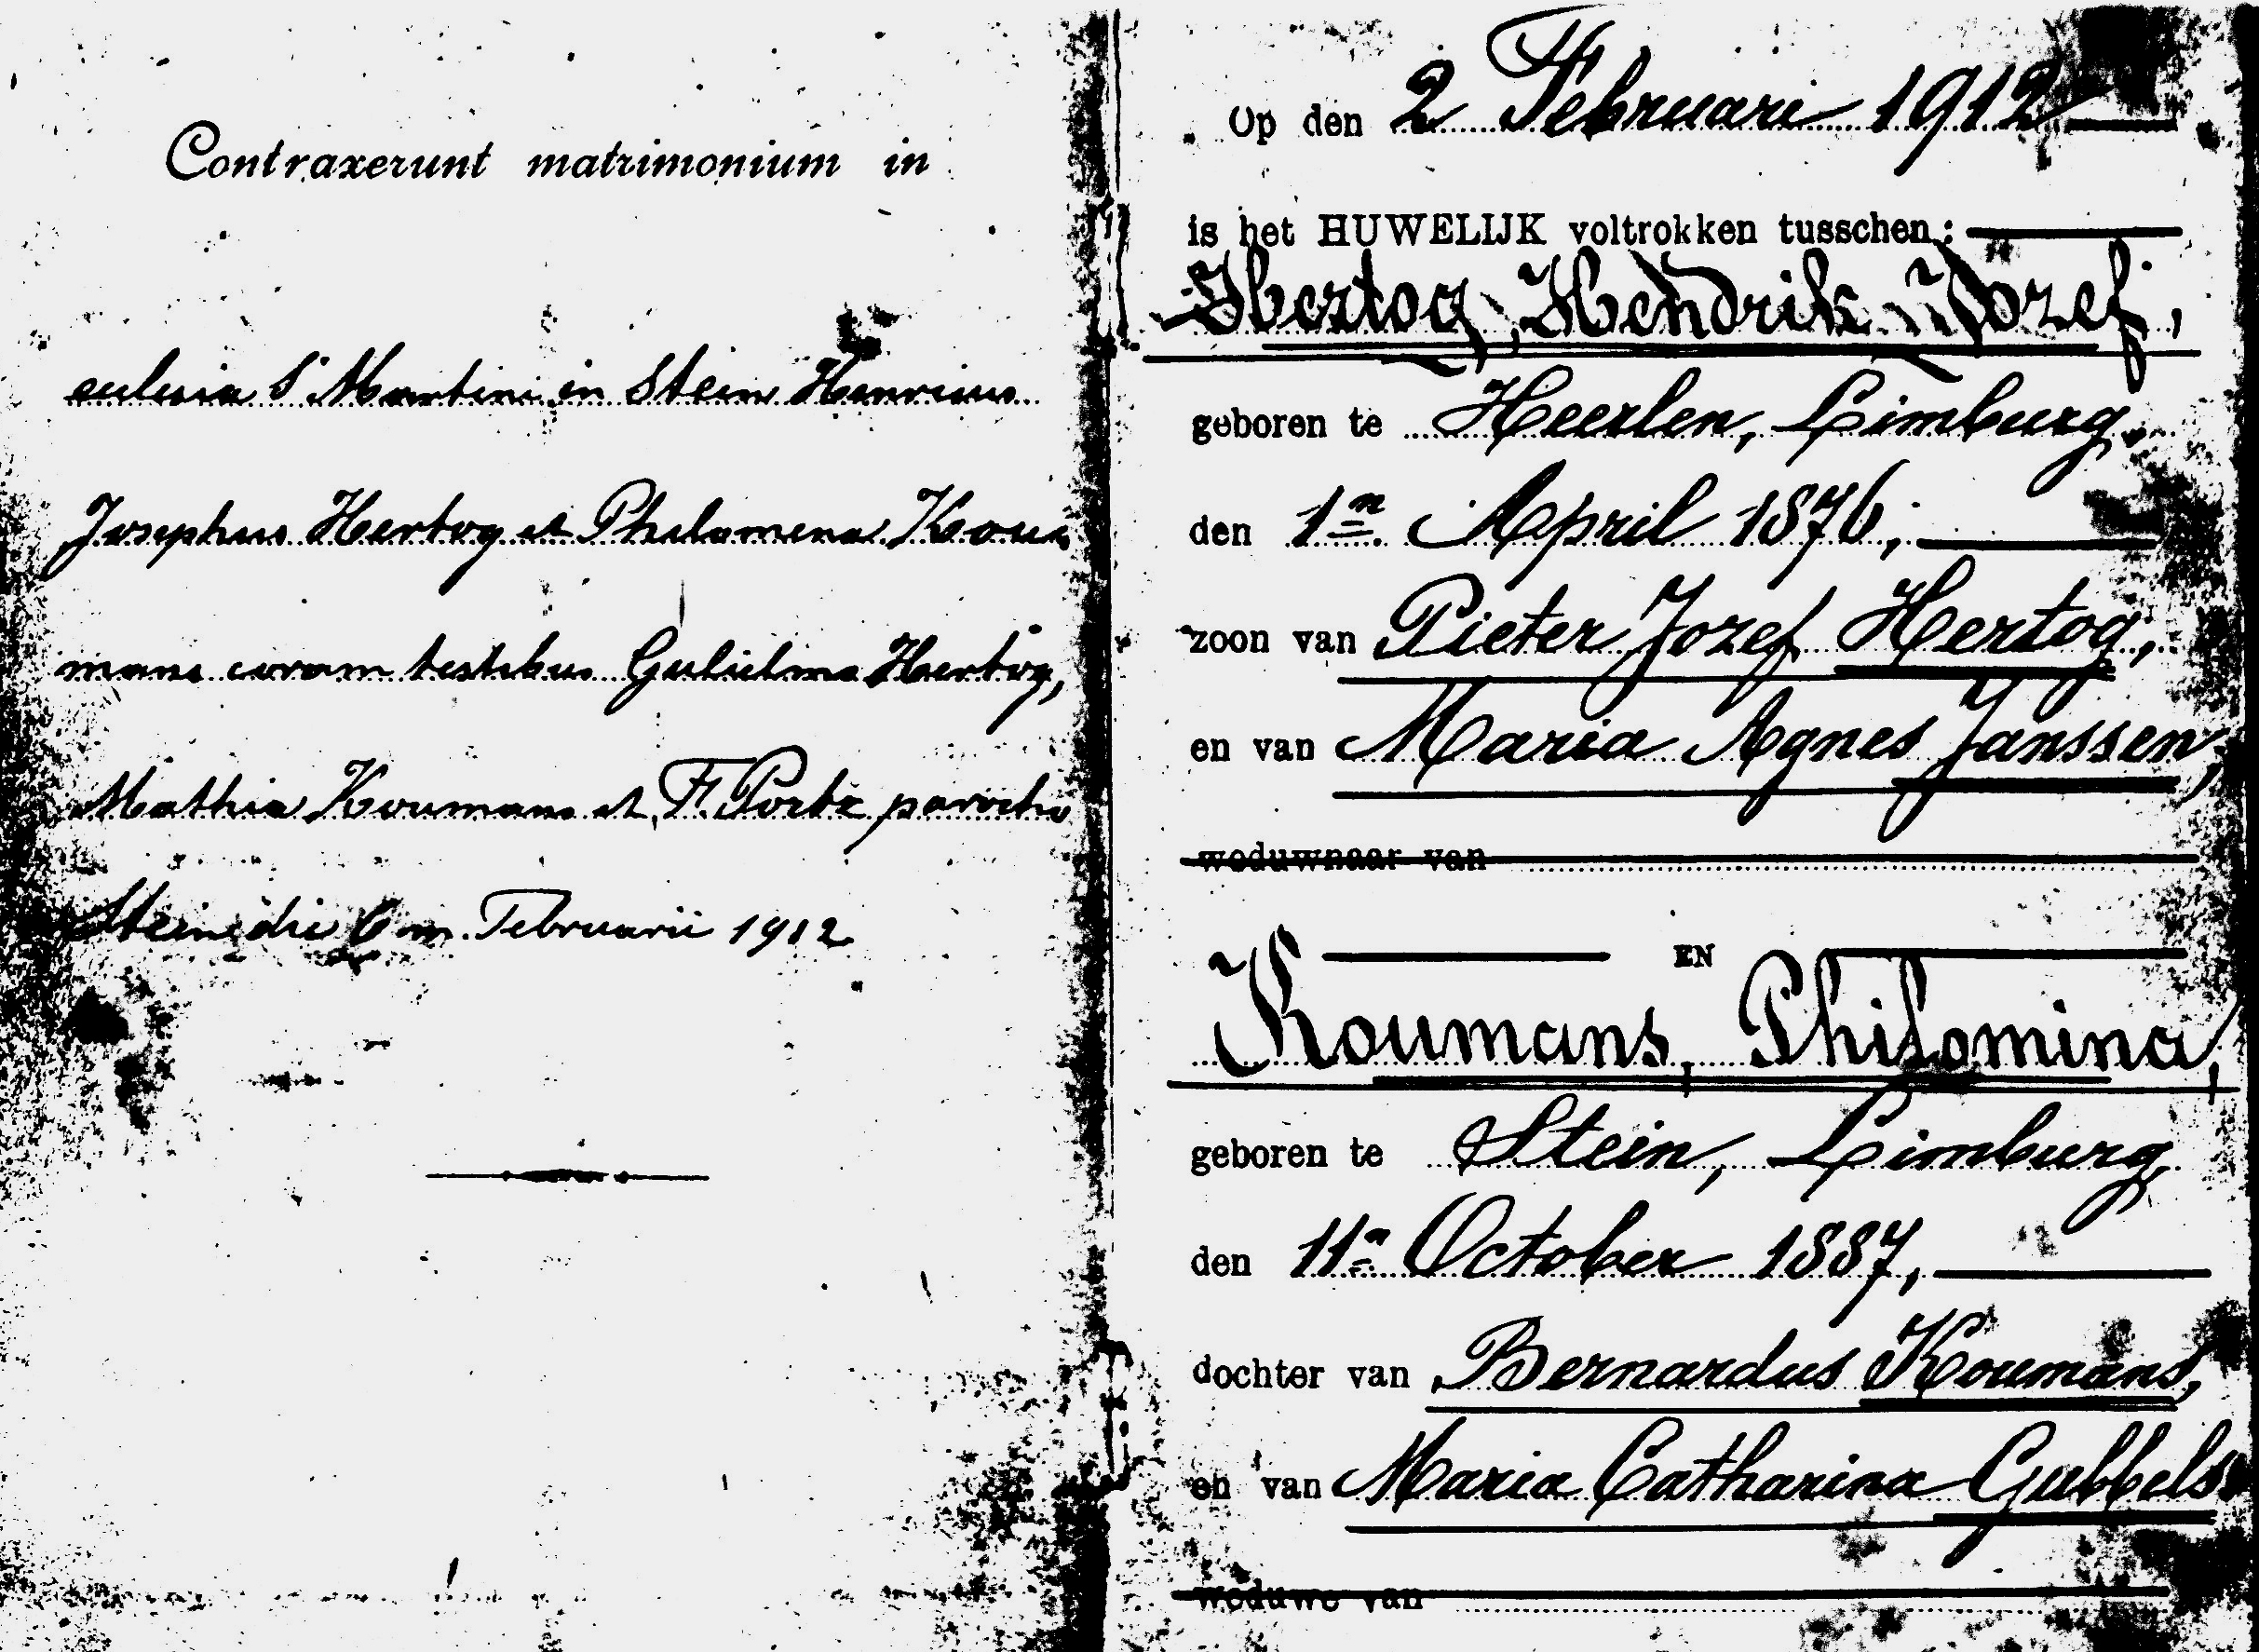 Contraxerunt matrimonium in
eclesia St Martini in Stein Henricus
Josephus Hertog et Philomena Kou
mans coram testibus Gulielmo Hertog,
Mathia Koumans et F. Portz parocho
Stein die 6 m. Februarii 1912
Op den 2 Februari 1912
is het HUWELIJK voltrokken tusschen:
Hertog, Hendrik Jozef,
geboren te Heerlen, Limburg,
den 1n April 1876,
zoon van Pieter Jozef Hertog,
en van Maria Agnes Janssen,
weduwnaar van
EN
Koumans, Philomina,
geboren te Stein, Limburg,
den 11n October 1887,
dochter van Bernardus Koumans,
en van Maria Catharina Gubbels
weduwe van